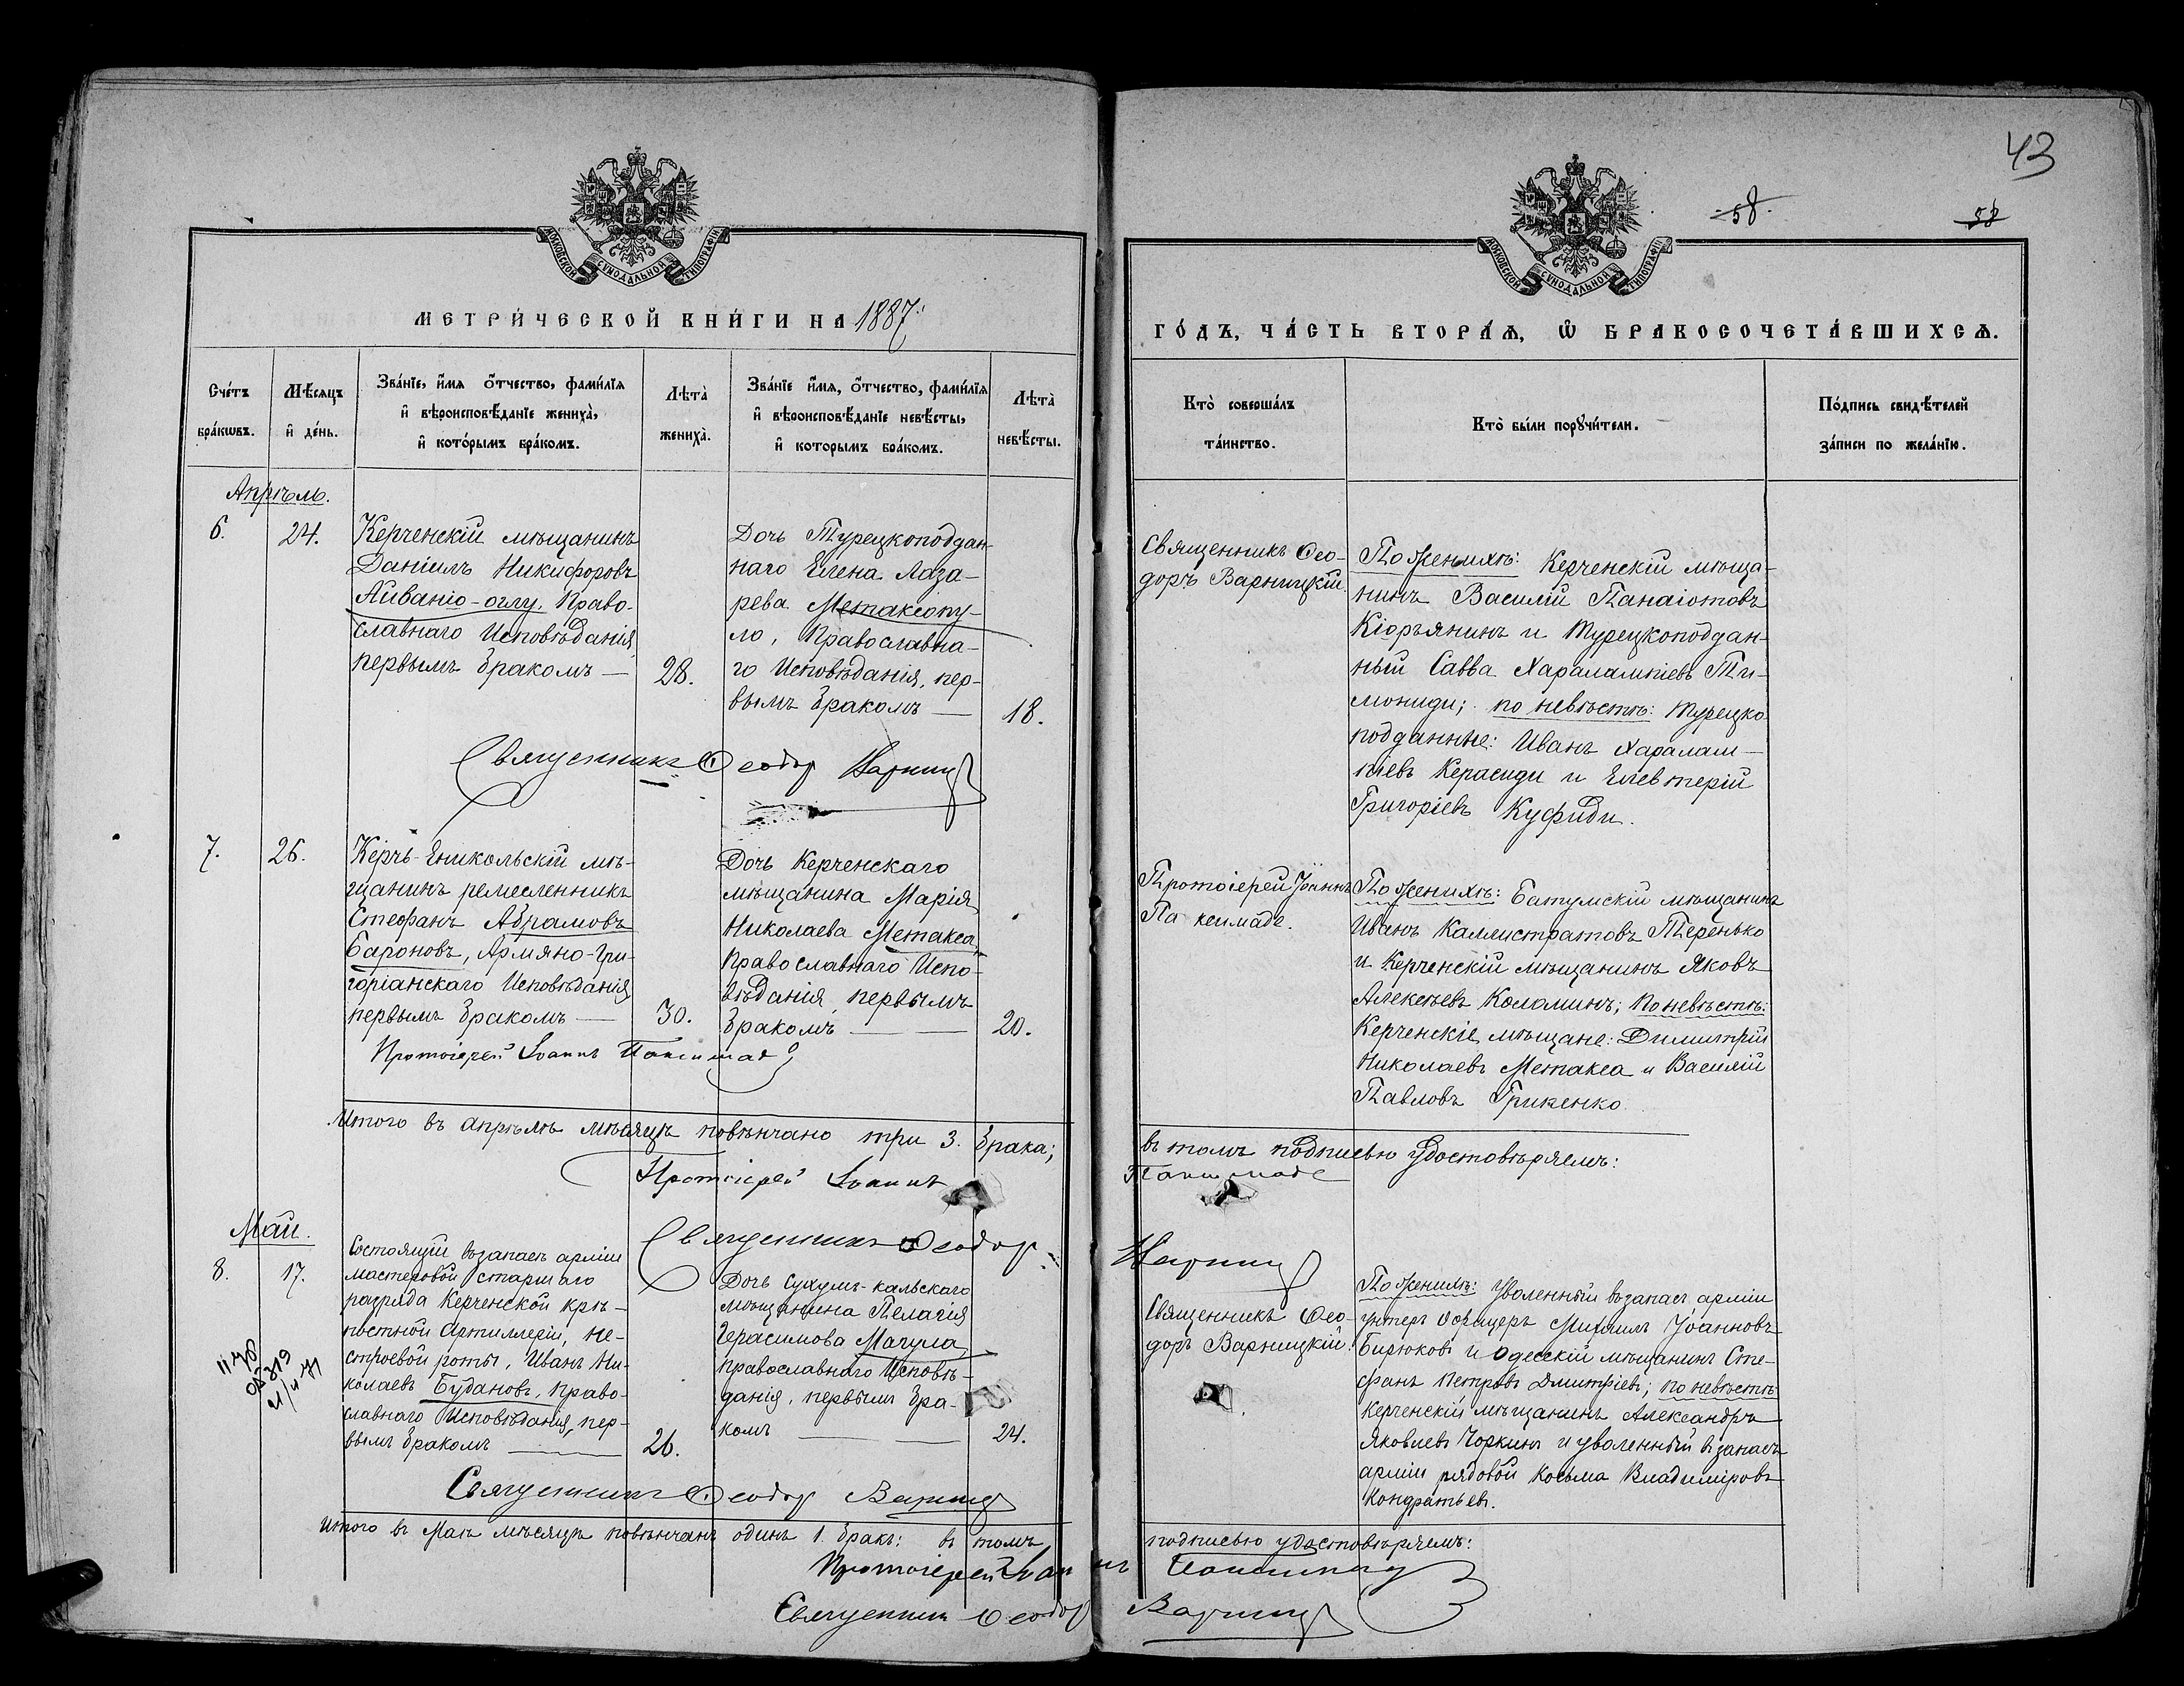 43
58.
58
МОСКОВСКОЙ СѴНОДАЛЬНОЙ ТИПОГРАФІИ
МОСКОВСКОЙ СѴНОДАЛЬНОЙ ТИПОГРАФІИ
МЕТРИ́ЧЕСКОЙ КНИ́ГИ НА 1887.
ГО́ДЪ, ЧА́СТЬ ВТОРА́Ѧ, Ѽ БРАКОСОЧЕТА́ВШИХСѦ.
Сче́тъ
бра́кѡвъ.
Мѣ́сяцъ
и҆ де́нь.
Зва́нїе, и҆́мѧ ѻ҆́тчество, фами́лїѧ
и҆ вѣроисповѣ́данїе жениха̀,
и҆ кото́рымъ бра́комъ.
Лѣта̀
жениха̀.
Зва́нїе и҆́мѧ, ѻ҆́тчество, фами́лїѧ
и҆ вѣроисповѣ́данїе невѣ́сты,
и҆ которымъ бра́комъ.
Лѣта̀
невѣ́сты.
Кто̀ соверша́лъ
та́инство.
Кто̀ бы́ли порꙋчи́тели.
По́дпись свидѣ́телей
за́писи по жела́нїю.
Апрѣль.
6.
24.
Керченскій мѣщанинъ
Даніилъ Никифоровъ
Айваніо-оглу. Право-
славнаго Исповѣданія
первымъ бракомъ —
28.
Дочь Турецкоподдан-
наго Елена Лаза-
рева Метаксопу-
ло, Православна-
го Исповѣданія, пер-
вымъ бракомъ —
18.
Священникъ Ѳео-
доръ Варницкій.
По женихѣ: Керченскій мѣща-
нинъ Василій Панаіотовъ
Кіорьянинъ и Турецкоподдан-
ный Савва Харалампіевъ Ти-
мониди; по невѣстѣ: Турецко
подданные: Иванъ Харалам-
піевъ Керасиди и Елевтерій
Григоріевъ Куфиди.
Священникъ Ѳеодоръ Варниц
7.
26.
Керчь-Еникольскій мѣ-
щанинъ ремесленникъ
Стефанъ Абрамовъ
Бароновъ, Армяно-Гри-
горіанскаго Исповѣданія
первымъ бракомъ —
30.
Дочь Керченскаго
мѣщанина Марія
Николаева Метакса,
Православнаго Испо-
вѣданія первымъ
бракомъ — —
20.
Протоіерей Іоаннъ
Паксимаде.
По женихѣ: Батумскій мѣщанинъ
Иванъ Каллистратовъ Теренько
и Керченскій мѣщанинъ Яковъ
Алексѣевъ Коломинъ; по невѣстѣ:
Керченскіе мѣщане: Димитрій
Николаевъ Метакса и Василій
Павловъ Грикенко
Протоіерей Іоаннъ Паксимаде
Итого въ апрѣлѣ мѣсяцѣ повѣнчано три 3. брака;
въ томъ подписью удостовѣряемъ:
Протоіерей Іоаннъ Паксимаде
Священникъ Ѳеодоръ Варниц
Май.
8.
17.
Состоящій въ запасѣ арміи
мастеровой старшаго
разряда Керченской крѣ-
постной артиллеріи, не-
строевой роты, Иванъ Ни-
колаевъ Будановъ, Право-
славнаго Исповѣданія, пер-
вымъ бракомъ —
26.
Дочь Сухумъ-кальскаго
мѣщанина Пелагія
Герасимова Магула
Православнаго Исповѣ-
данія, первымъ бра-
комъ — —
24.
Священникъ Ѳео-
доръ Варницкій.
По женихѣ: Уволенный въ запасъ арміи
унтеръ офицеръ Михаилъ Іоанновъ
Бирюковъ и Одесскій мѣщанинъ Сте-
фанъ Петровъ Дмитріевъ; по невѣстѣ
Керченскій мѣщанинъ Александръ
Яковлевъ Чоркинъ и уволенный въ запасъ
арміи рядовой Косьма Владиміровъ
Кондратьевъ.
Священникъ Ѳеодоръ Варниц
Итого въ Маѣ мѣсяцѣ повѣнчанъ одинъ 1. бракъ: въ томъ
подписью удостовѣряемъ:
Протоіерей Іоаннъ Паксимад
Священникъ Ѳеодоръ Варниц